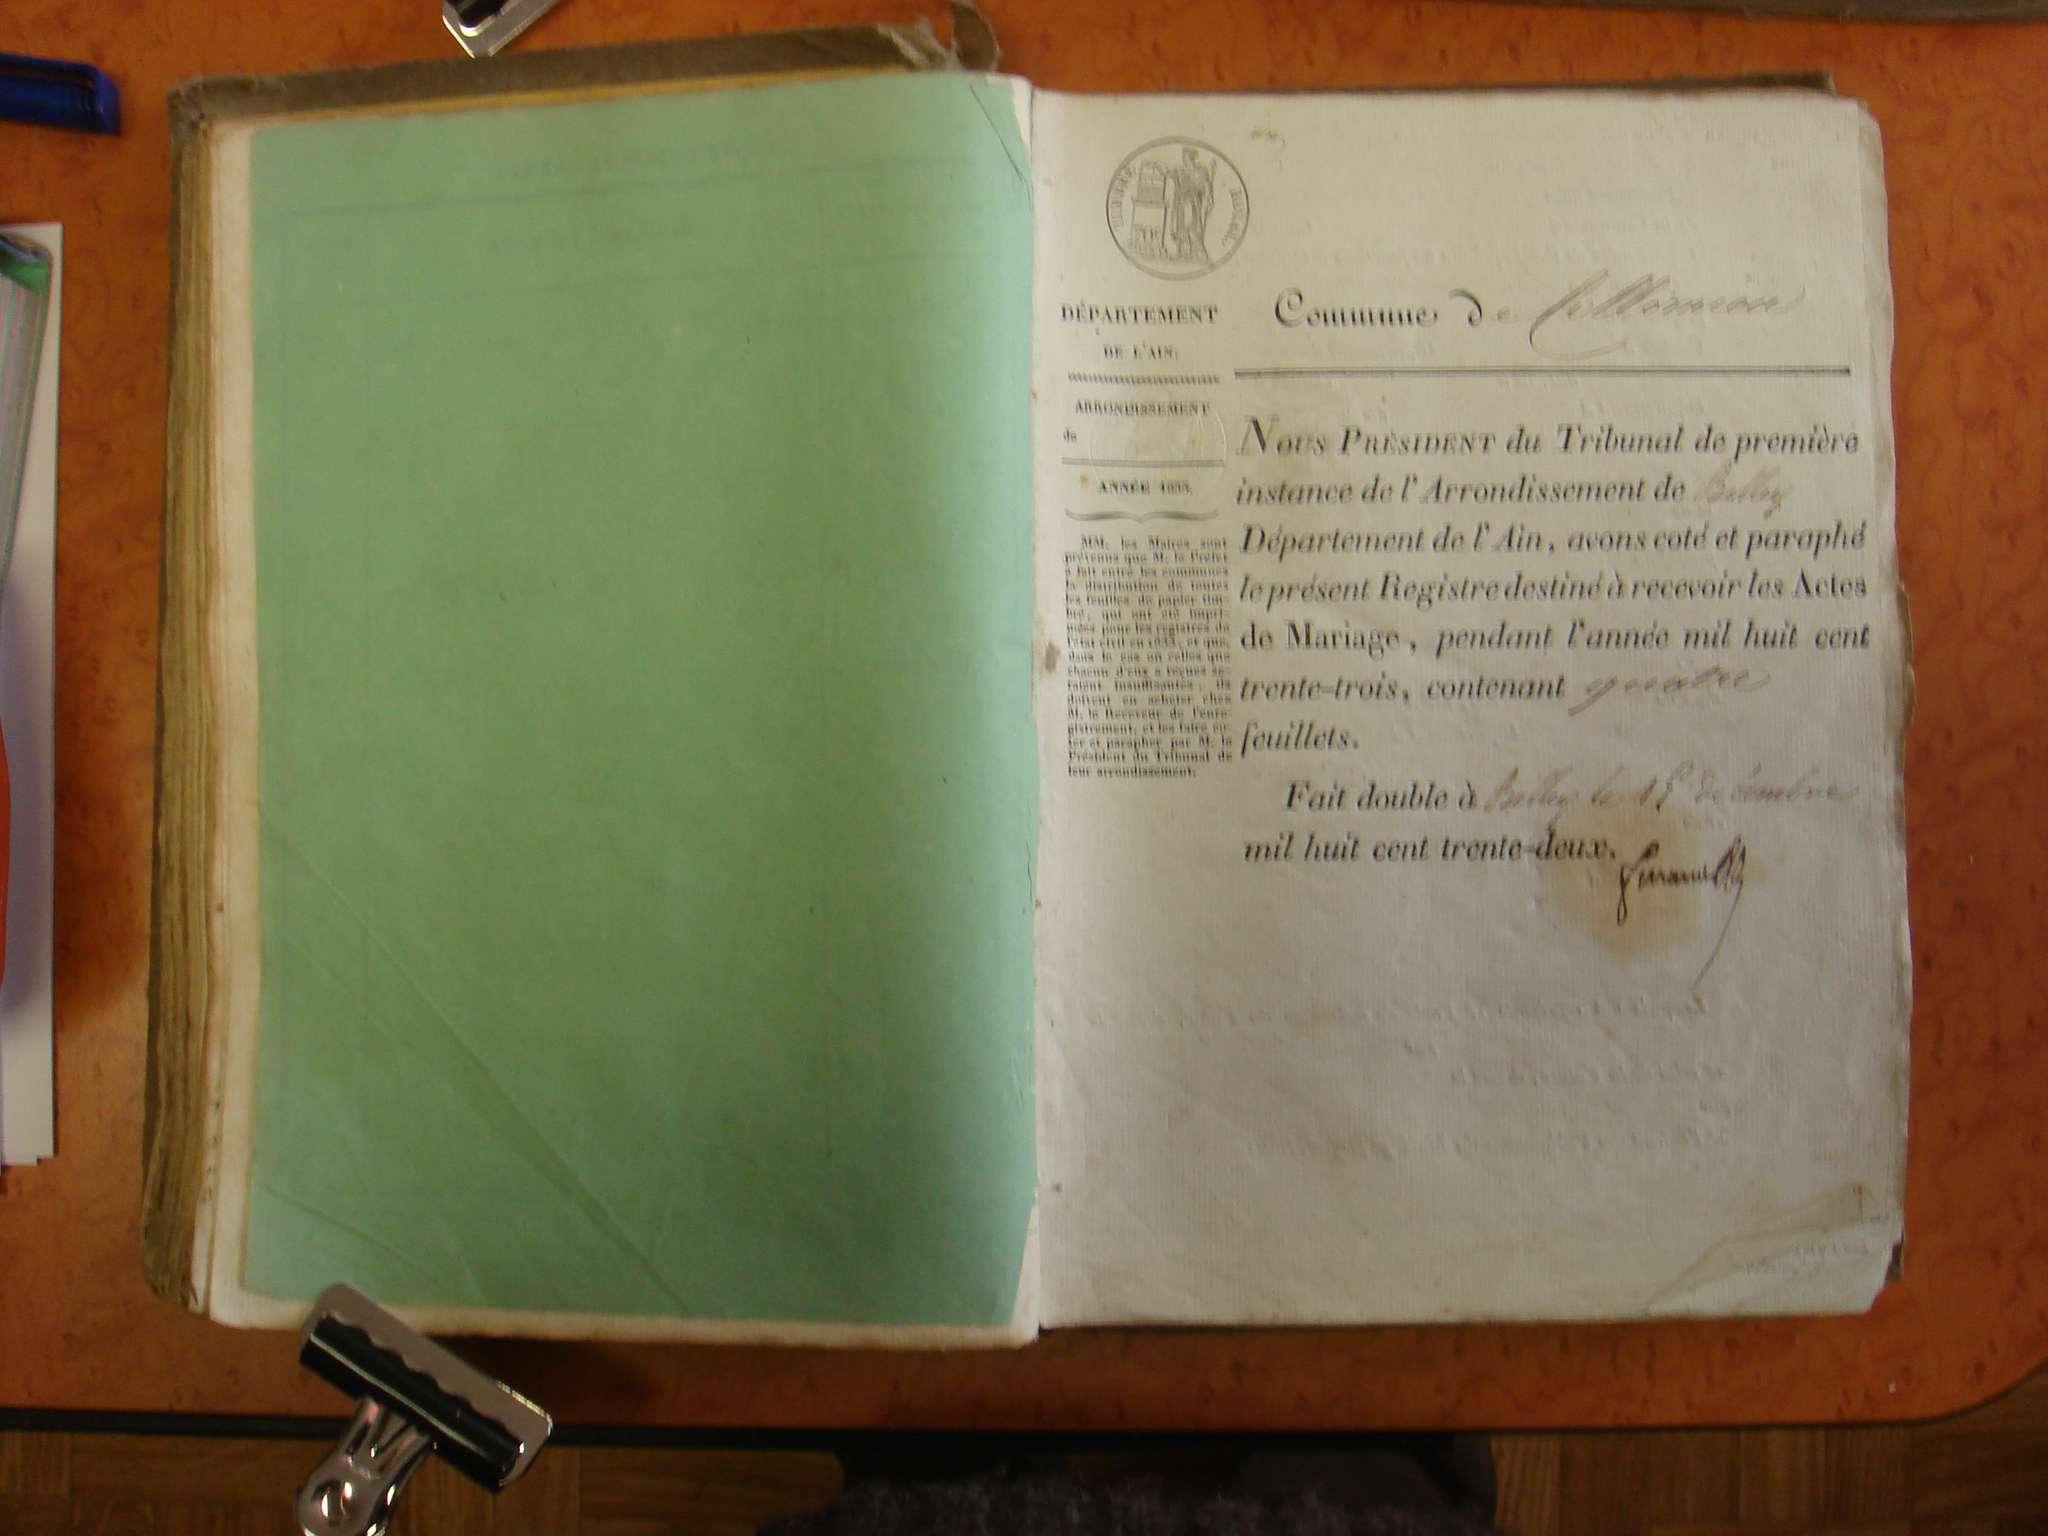 DÉPARTEMENT
DE L'AIN.
ARRONDISSEMENT
de
ANNÉE 1833.
MM. les Maires sont
prévenus que M. le Préfet
a fait entre les communes
la distribution de toutes
les feuilles de papier tim-
bré, qui ont été impri-
mées pour les registres de
l'état civil en 1833, et que,
dans le cas où celles que
chacun d'eux a reçues se-
raient insuffisantes, ils
doivent en acheter chez
M. le Receveur de l'enre-
gistrement, et les faire co-
ter et parapher par M. le
Président du Tribunal de
leur arrondissement.
Commune de
NOUS PRÉSIDENT du Tribunal de première
instance de l'Arrondissement de Belley
Département de l'Ain, avons coté et paraphé
le présent Registre destiné à recevoir les Actes
de Mariage, pendant l'année mil huit cent
trente-trois, contenant quatre
feuillets.
Fait double à Belley le 15 décembre
mil huit cent trente-deux.